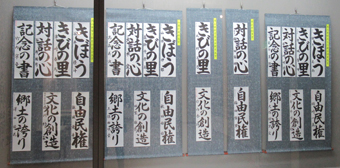 きぼう
対話の心
記念の書
自由民権
文化の創造
郷土の誇り
きぼう
対話の心
記念の書
自由民権
文化の創造
郷土の誇り
対話の心
自由民権
きびの里
文化の創造
きぼう
きびの里
対話の心
自由民権
文化の創造
郷土の誇り